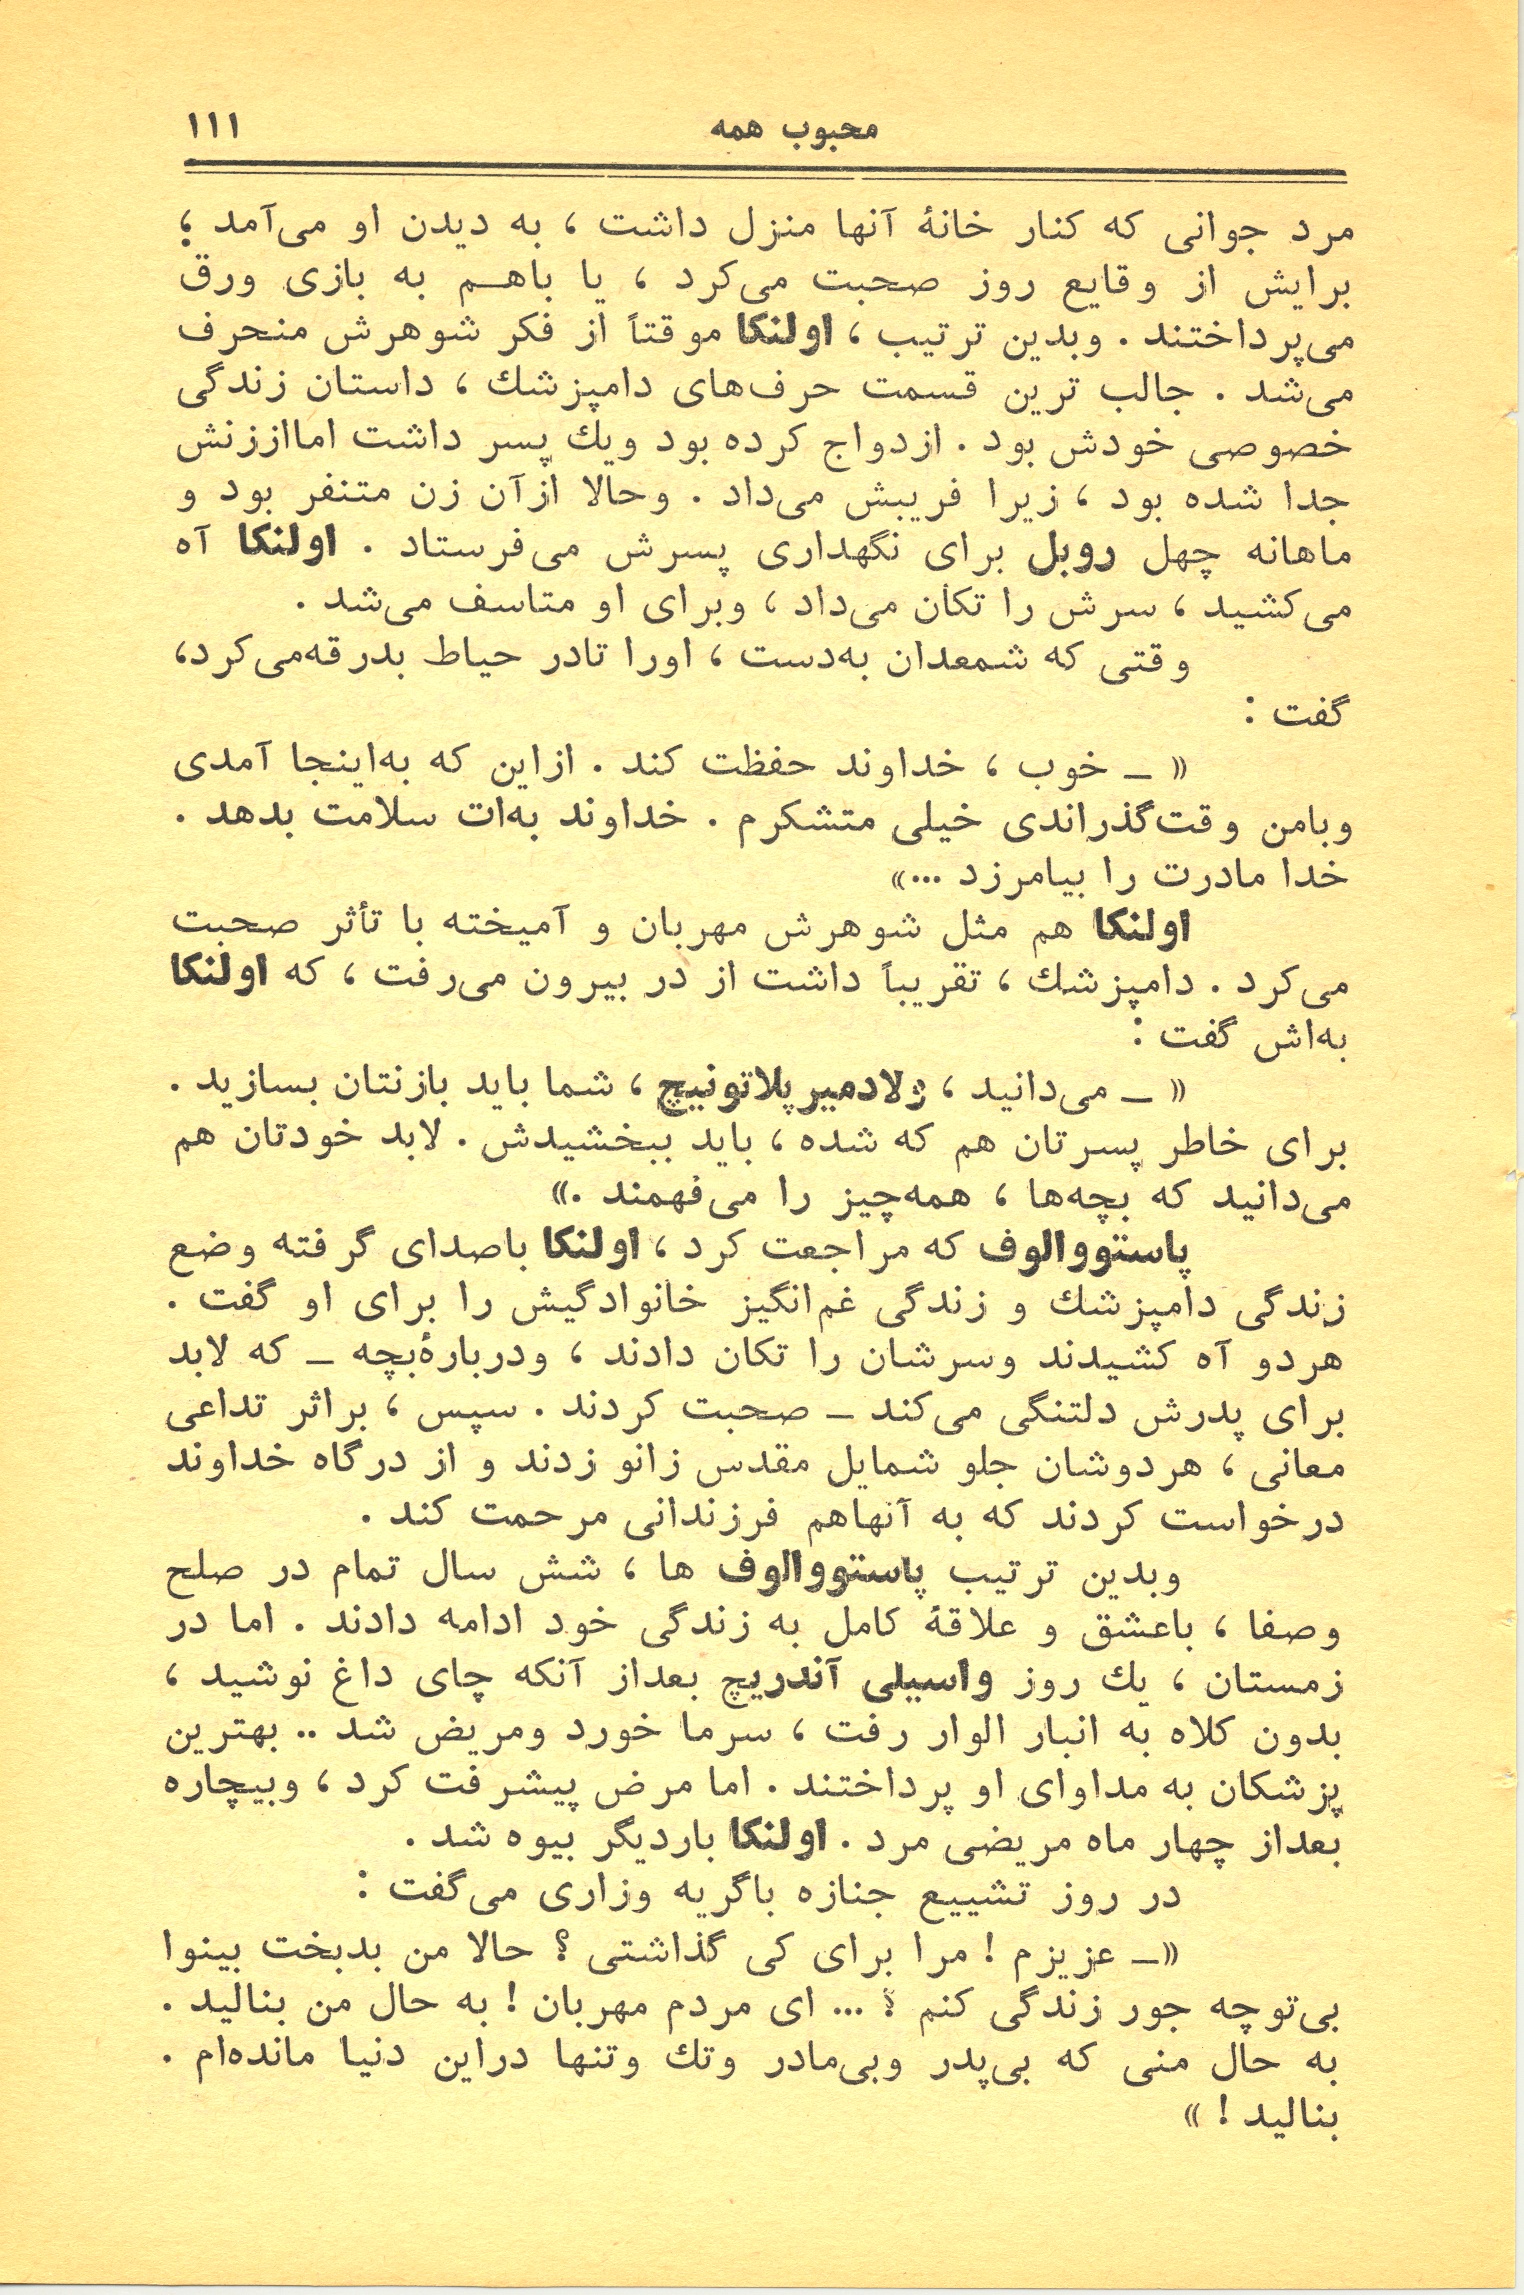 محبوب همه ۱۱۱
مرد جوانی که کنار خانهٔ آنها منزل داشت ، به دیدن او می‌آمد ؛
برایش از وقایع روز صحبت می‌کرد ، یا باهم به بازی ورق
می‌پرداختند . وبدین ترتیب ، اولنکا موقتاً از فکر شوهرش منحرف
می‌شد . جالب ترین قسمت حرف‌های دامپزشك ، داستان زندگی
خصوصی خودش بود . ازدواج کرده بود ویك پسر داشت امااززنش
جدا شده بود ، زیرا فریبش می‌داد . وحالا ازآن زن متنفر بود و
ماهانه چهل روبل برای نگهداری پسرش می‌فرستاد . اولنکا آه
می‌کشید ، سرش را تکان می‌داد ، وبرای او متاسف می‌شد .
وقتی که شمعدان به‌دست ، اورا تادر حیاط بدرقه‌می‌کرد،
گفت :
« ـ خوب ، خداوند حفظت کند . ازاین که به‌اینجا آمدی
وبامن وقت‌گذراندی خیلی متشکرم . خداوند به‌ات سلامت بدهد .
خدا مادرت را بیامرزد ...»
اولنکا هم مثل شوهرش مهربان و آمیخته با تأثر صحبت
می‌کرد . دامپزشك ، تقریباً داشت از در بیرون می‌رفت ، که اولنکا
به‌اش گفت :
« ـ می‌دانید ، ولادمیرپلاتونیچ ، شما باید بازنتان بسازید .
برای خاطر پسرتان هم که شده ، باید ببخشیدش . لابد خودتان هم
می‌دانید که بچه‌ها ، همه‌چیز را می‌فهمند .»
پاستووالوف که مراجعت کرد ، اولنکا باصدای گرفته وضع
زندگی دامپزشك و زندگی غم‌انگیز خانوادگیش را برای او گفت .
هردو آه کشیدند وسرشان را تکان دادند ، ودربارهٔبچه ـ که لابد
برای پدرش دلتنگی می‌کند ـ صحبت کردند . سپس ، براثر تداعی
معانی ، هردوشان جلو شمایل مقدس زانو زدند و از درگاه خداوند
درخواست کردند که به آنهاهم فرزندانی مرحمت کند .
وبدین ترتیب پاستووالوف ها ، شش سال تمام در صلح
وصفا ، باعشق و علاقهٔ کامل به زندگی خود ادامه دادند . اما در
زمستان ، یك روز واسیلی آندریچ بعداز آنکه چای داغ نوشید ،
بدون کلاه به انبار الوار رفت ، سرما خورد ومریض شد .. بهترین
پزشکان به مداوای او پرداختند . اما مرض پیشرفت کرد ، وبیچاره
بعداز چهار ماه مریضی مرد . اولنکا باردیگر بیوه شد .
در روز تشییع جنازه باگریه وزاری می‌گفت :
«ـ عزیزم ! مرا برای کی گذاشتی ؟ حالا من بدبخت بینوا
بی‌توچه جور زندگی کنم ؟ ... ای مردم مهربان ! به حال من بنالید .
به حال منی که بی‌پدر وبی‌مادر وتك وتنها دراین دنیا مانده‌ام .
بنالید ! »